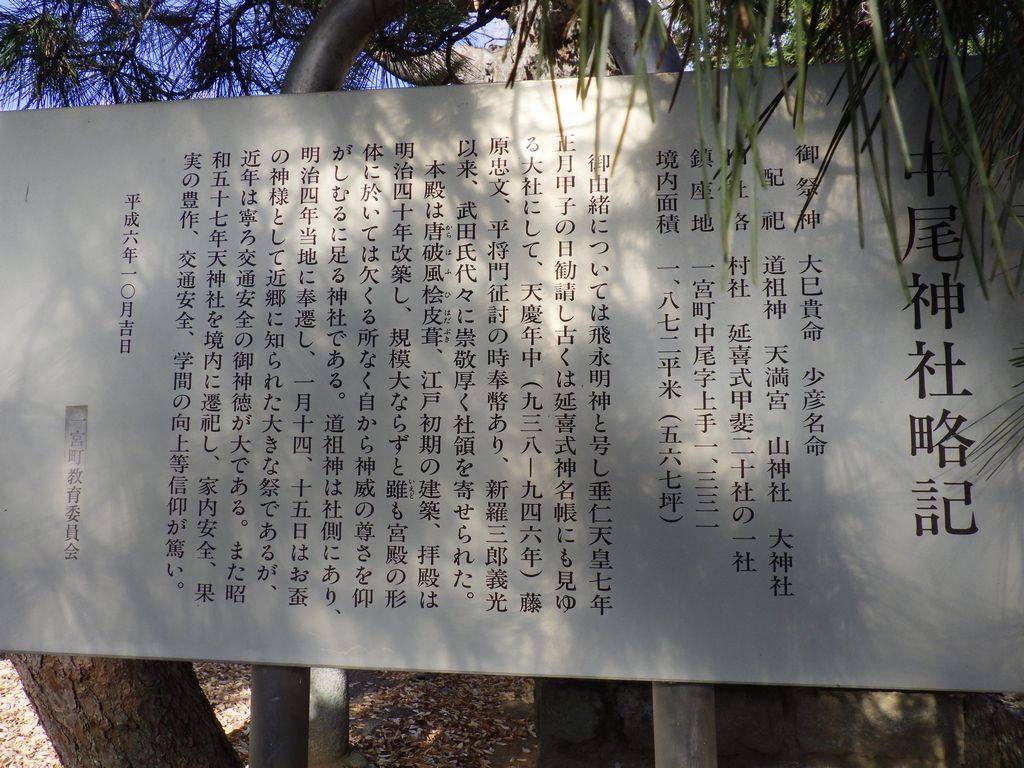 中尾神社略記
御祭神 大巳貴命 少彦名命
配祀 道祖神 天満宮 山神社 大神社
社格 村社 延喜式甲斐二十社の一社
鎮座地 一宮町中尾字上手一、三三一
境内面積 一、八七二平米(五六七坪)
御由緒については飛永明神と号し垂仁天皇七年
正月甲子の日勧請し古くは延喜式神名帳にも見ゆ
る大社にして、天慶年中(九三八―九四六年)藤
原忠文、平将門征討の時奉幣あり、新羅三郎義光
以来、武田氏代々に崇敬厚く社領を寄せられた。
本殿は唐破風桧皮葺、江戸初期の建築、拝殿は
からはふひはだぶき
明治四十年改築し、規模大ならずと雖も宮殿の形
いえど
体に於いては欠くる所なく自から神威の尊さを仰
がしむるに足る神社である。道祖神は社側にあり、
明治四年当地に奉遷し、一月十四、十五日はお蚕
の神様として近郷に知られた大きな祭であるが、
近年は寧ろ交通安全の御神徳が大である。また昭
和五十七年天神社を境内に遷祀し、家内安全、果
実の豊作、交通安全、学問の向上等信仰が篤い。
平成六年一〇月吉日
一宮町教育委員会